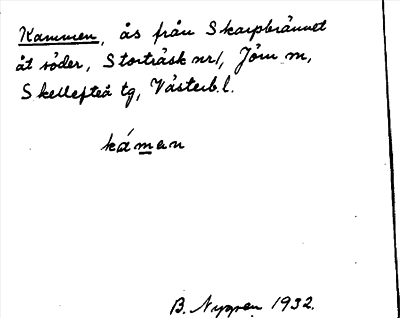 Kammen, ås från Skarpbrännet
åt söder, Storträsk nr 1, Jörn sn,
Skellefteå tg, Västerb. l.
káman
B. Nygren 1932.